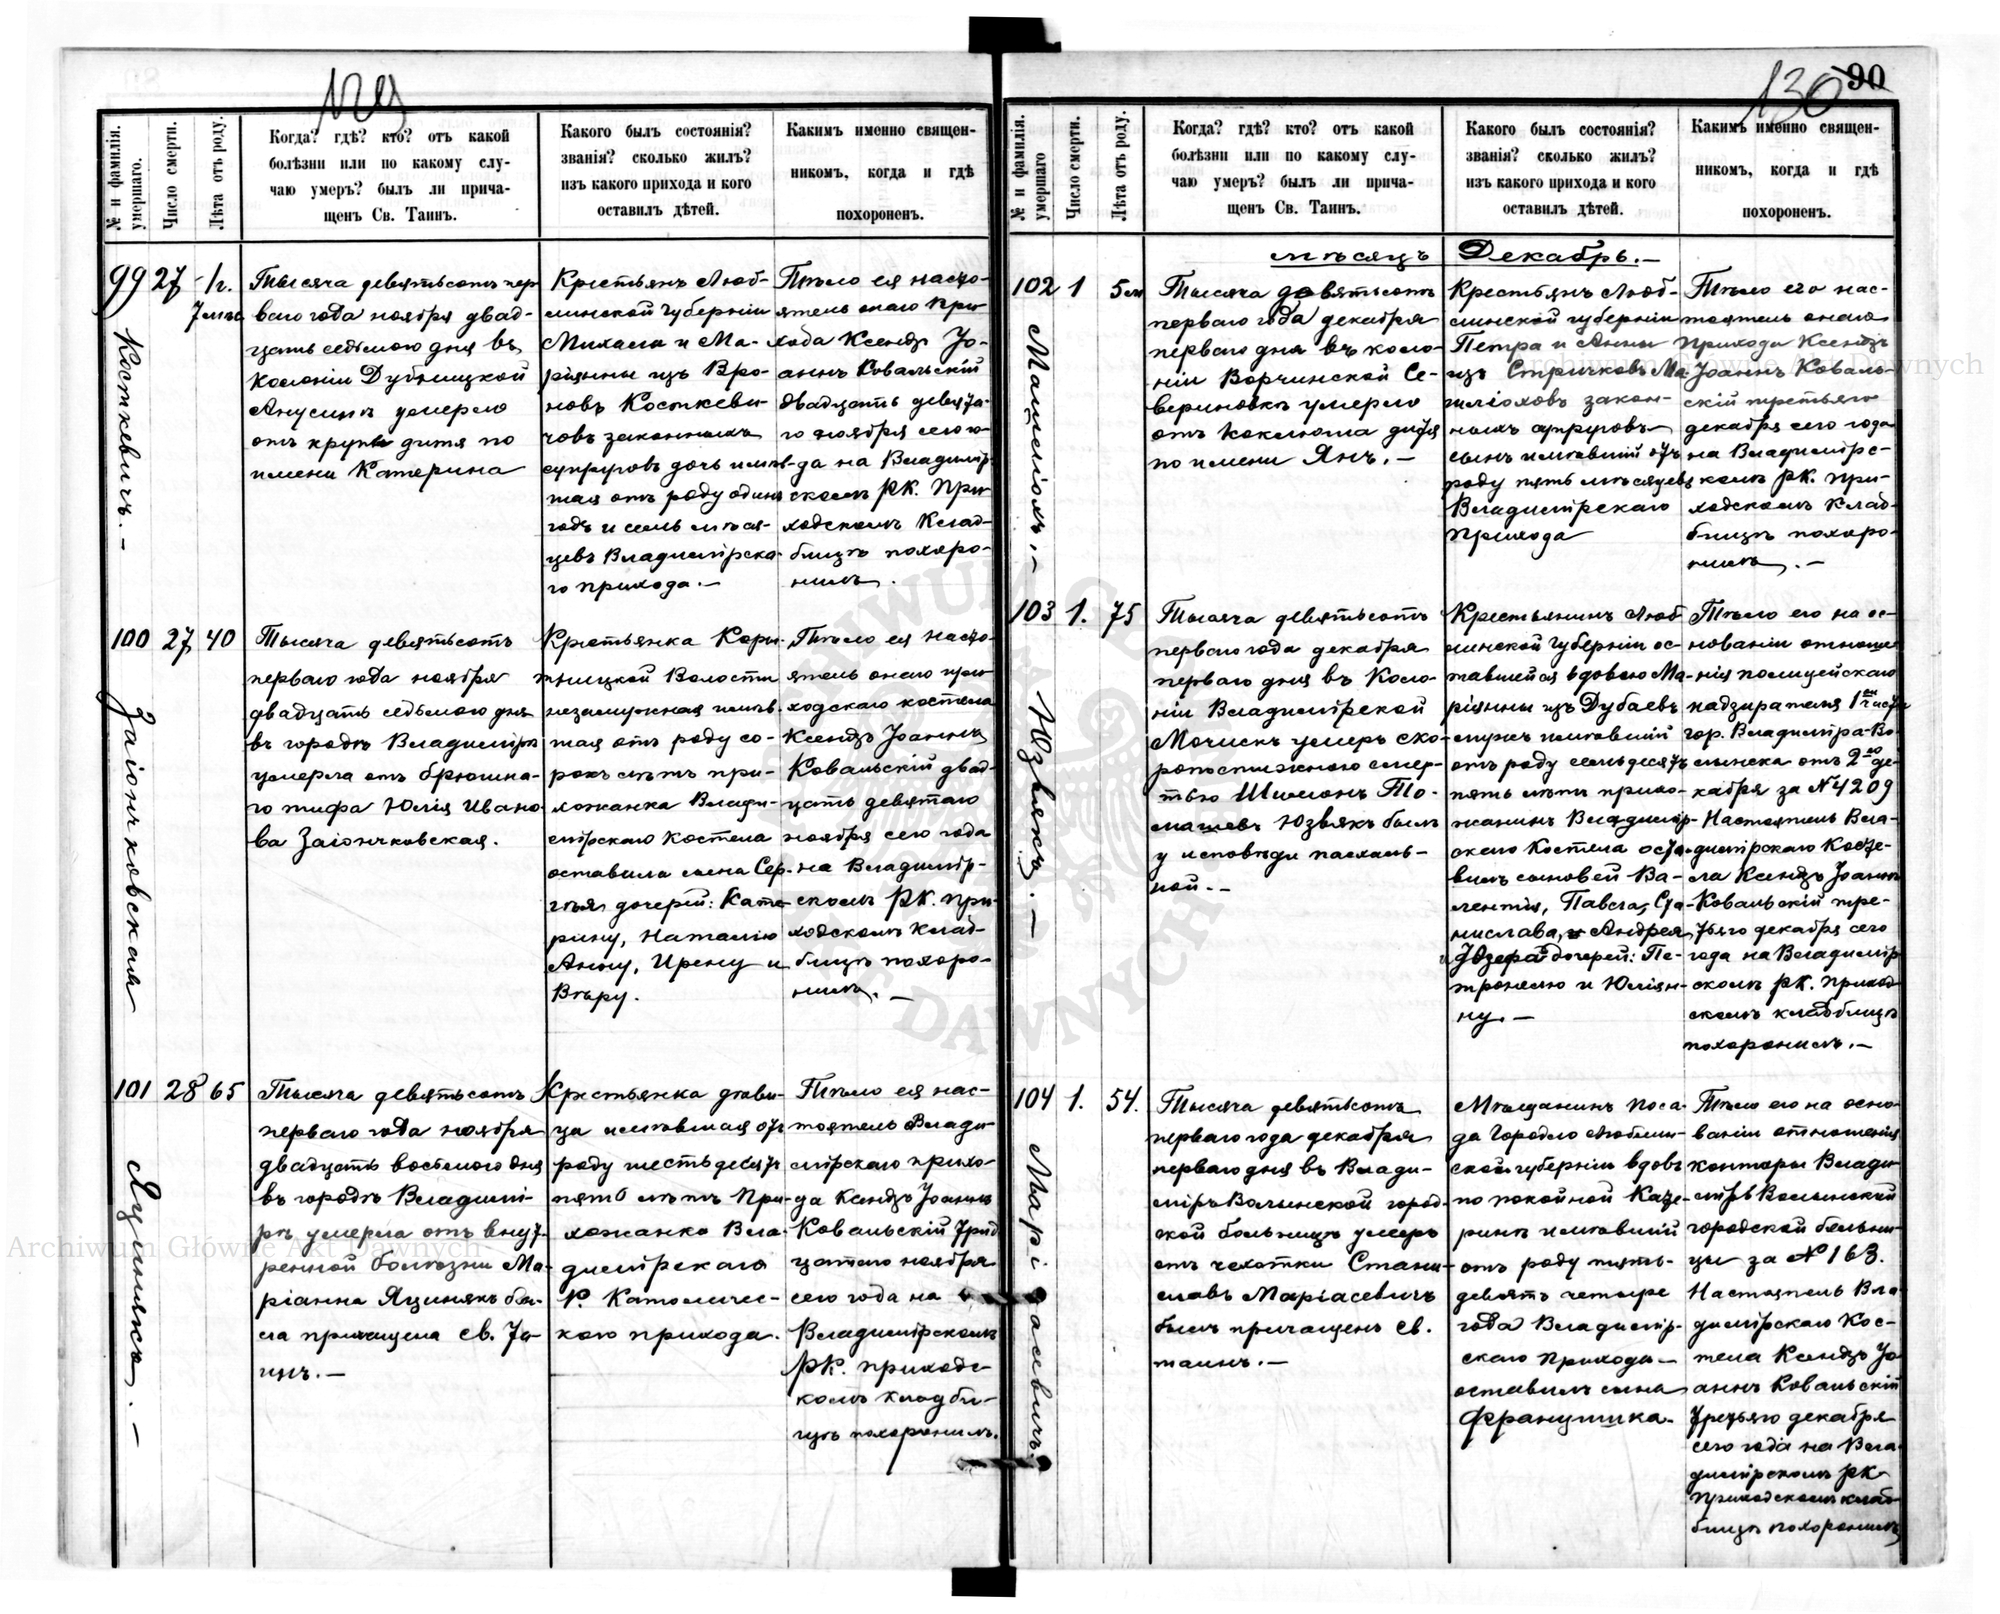 129
№ и фамилія умершаго.
Число смерти.
Лѣта отъ роду.
Когда? гдѣ? кто? отъ какой
болѣзни или по какому слу-
чаю умеръ? былъ ли прича-
щенъ Св. Таинъ.
Какого былъ состоянія?
званія? сколько жилъ?
изъ какого прихода и кого
оставилъ дѣтей.
Какимъ именно священ-
никомъ, когда и гдѣ
похороненъ.
99
Косткевичъ.-
27
1г.
7 мѣс
Тысяча девятьсотъ пер
ваго года ноября двад-
цать седьмого дня въ
Колоніи Дубницкой
Анусинъ умерло
отъ крупа дитя по
имени Катерина
Крестьянъ Люб-
линской губерніи
Михаила и Ма-
ріянны изъ Вро-
новъ Косткеви-
човъ законныхъ
супруговъ дочь имѣв-
шая отъ роду одинъ
годъ и семь мѣся-
цевъ Владимірска-
го прихода.-
Тѣло ея насто-
ятель онаго При
хода Ксендзъ Іо-
аннъ Ковальскій
двадцать девята-
го ноября сего го-
да на Владимір
скомъ РК. При
ходскомъ Клад-
бищѣ похоро-
нилъ.
100
Заіончковская
27
40
Тысяча девятьсотъ
перваго года ноября
двадцать седьмого дня
въ городѣ Владимірѣ
умерла отъ брюшна-
го тифа Юлія Ивано
ва Заіончковская.
Крестьянка Коры-
тницкой Волости
незамужная имѣв-
шая отъ роду со-
рокъ лѣтъ при-
хожанка Влади-
мірскаго Костела
оставила сына Сер-
гѣя, дочерей: Кате-
рину, Наталію
Анну, Ирену и
Вѣру.
Тѣло ея насто-
ятель онаго при
ходскаго костела
Ксендзъ Іоаннъ
Ковальскій двад-
цать девятаго
ноября сего года
на Владимір-
скомъ РК. при-
ходскомъ Клад-
бищѣ похоро-
нилъ.-
101
Яцинякъ.-
28
65
Тысяча девятьсотъ
перваго года ноября
двадцать восьмого дня
въ городѣ Владимі-
рѣ умерла отъ внут-
ренной болѣзни Ма-
ріанна Яцинякъ бы-
ла причащена Св. Та-
инъ.-
Крестьянка дѣви-
ца имѣвшая отъ
роду шестьдесятъ
пять лѣтъ При-
хожанка Вла-
димірскаго
Р. Католичес-
кого прихода.
Тѣло ея нас-
тоятель Влади-
мірскаго прихо-
да Ксендзъ Іоаннъ
Ковальскій трид
цатаго ноября
сего года на
Владимірскомъ
РК. приходс-
комъ кладби-
щѣ похоронилъ.
130
90
№ и фамилія умершаго
Число смерти.
Лѣта отъ роду.
Когда? гдѣ? кто? отъ какой
болѣзни или по какому слу-
чаю умеръ? былъ ли прича-
щенъ Св. Таинъ.
Какого былъ состоянія?
званія? сколько жилъ?
изъ какого прихода и кого
оставилъ дѣтей.
Какимъ именно священ-
никомъ, когда и гдѣ
похороненъ.
мѣсяцъ Декабрь.-
102
1
5 м
Тысяча девятьсотъ
перваго года декабря
перваго дня въ коло-
ніи Ворчинской Се-
вериновкѣ умерло
отъ Коклюша дитя
по имени Янъ.-
Крестьянъ Люб-
линской губерніи
Петра и Анны
изъ Стричковъ Ма-
закон-
ныхъ супруговъ
сынъ имѣвшій отъ
роду пять мѣсяцевъ
Владимірскаго
Прихода
Тѣло его нас-
тоятель онаго
Прихода Ксендзъ
Іоаннъ Коваль-
скій третьяго
декабря сего года
на Владимірс-
комъ РК. при-
ходскомъ Клад-
бищѣ похоро-
нилъ.-
103
Юзвякъ.-
1.
75
Тысяча девятьсотъ
перваго года декабря
перваго дня въ Коло-
ніи Владимірской
умеръ ско-
ропостижного смер-
тью Шимонъ То-
машевъ Юзвякъ былъ
у исповѣди пасхаль-
ной.-
Крестьянинъ Люб
линской губерніи ос-
тавшейся вдовою Ма-
ріянны изъ Дубаевъ
мужъ имѣвшій
отъ роду семьдесятъ
пять лѣтъ прихо-
жанинъ Владимір-
скаго Костела оста-
вилъ сыновей Ва-
лентія, Павла, Ста-
нислава, и Андрея
и Юзефа дочерей: Пе-
тронелю и Юліян-
ну.-
Тѣло его на ос-
нованіи отноше-
нія полицейскаго
надзирателя 1ой части
гор. Владиміра-Во-
лынска отъ 2го де-
кабря за №4209
Настоятель Вла-
димірскаго Косте-
ла Ксендзъ Іоаннъ
Ковальскій тре-
тьяго декабря сего
года на Владимір
скомъ РК. приход
скомъ кладбищѣ
похоронилъ.-
104
Маріасевичъ
1.
54.
Тысяча девятьсотъ
перваго года декабря
перваго дня въ Влади-
мірѣ Волынской город-
ской больницѣ умеръ
отъ чахотки Стани-
славъ Маріасевичъ
былъ причащенъ Св.
таинъ.-
Мѣщанинъ Поса-
да Городло Люблин-
ской губерніи вдовъ
по покойной Кате-
ринѣ имѣвшій
отъ роду пять-
девять четыре
года Владимір-
скаго Прихода-
оставилъ сына
Францишка.
Тѣло его на осно-
ваніи отношенія
конторы Влади-
мірѣ Волынский
городской больни-
цы за № 163.
Настоятель Вла-
димірскаго Кос-
тела Ксендзъ Іо-
аннъ Ковальскій
третьяго декабря
сего года на Вла-
димірскомъ РК
приходскомъ клад
бищѣ похоронилъ
Archiwum Główne Akt Dawnych
Archiwum Główne Akt Dawnych